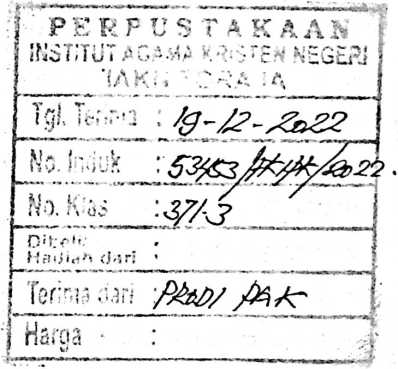 PERPUSTAKAAN
INSTITUT AGAMA KRISTEN NEGERI
IAKN TORAJA
Tgl. Terima : 19-12-2022
No. Induk : 53453/ /2022.
No. Klas : 371.3
Dibeli:
Hadiah dari :
Terima dari : PRODI PAK
Harga :